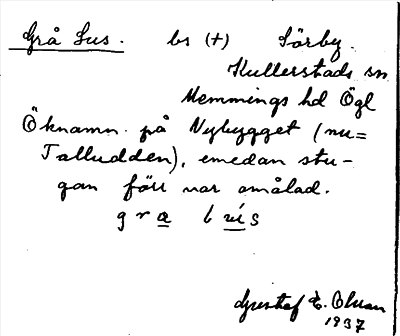 Grå Lus. bs (+) Sörby.
Kullerstads sn
Memmings hd Ögl
Öknamn på Nybygget (nu=
Talludden), emedan stu-
gan förr var omålad.
g r a l u s
Gustaf E. Olsson
1937